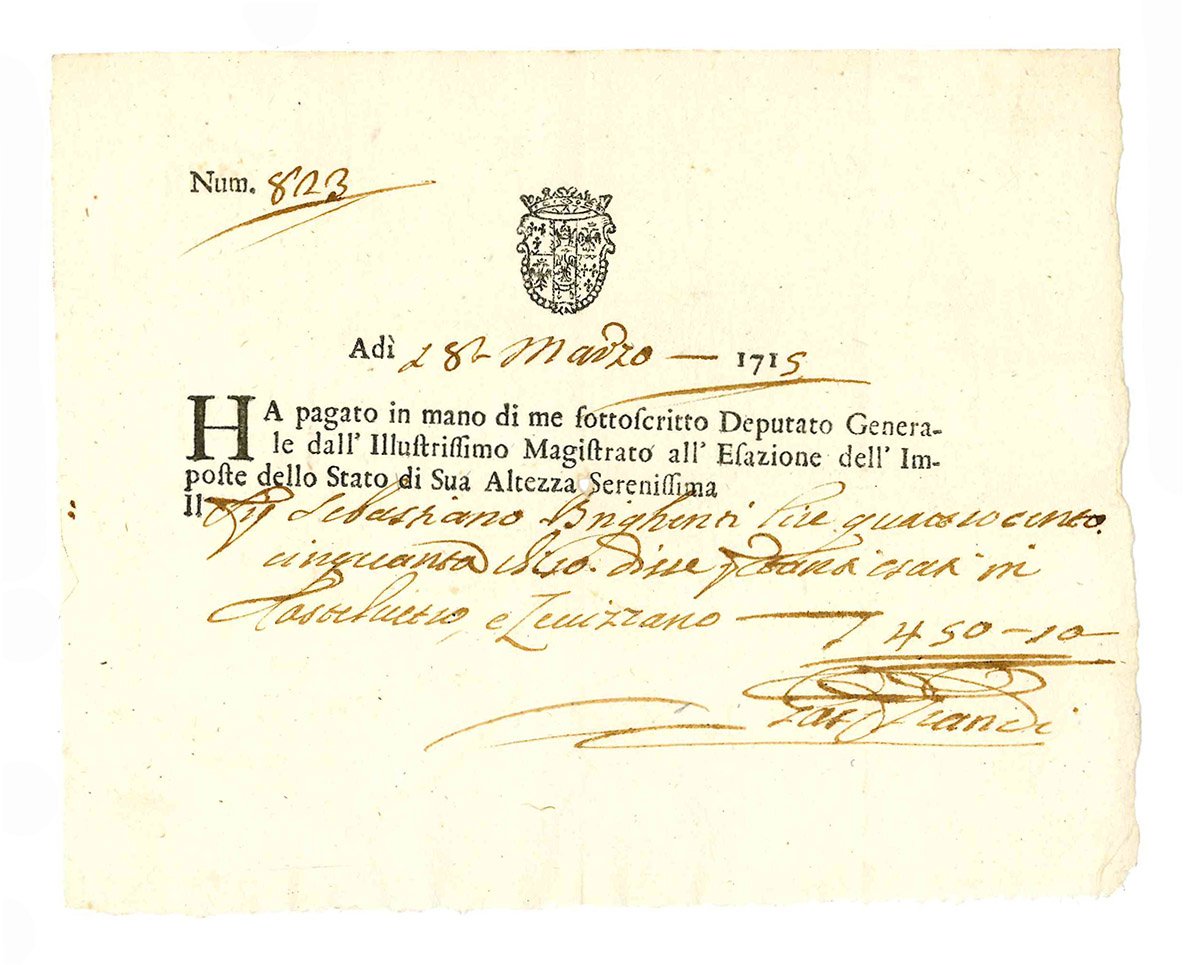 Num. 823
Adì 28 Marzo — 1715
HA pagato in mano di me ſottoſcritto Deputato Genera-
le dall' Illuſtriſſimo Magiſtrato all' Eſazione dell' Im-
poſte dello Stato di Sua Altezza Sereniſſima
Il Sig Sebastiano Brighenti lire quatrocento
cinquanta disse in
Castelvetro, e Levizzano — 450-10